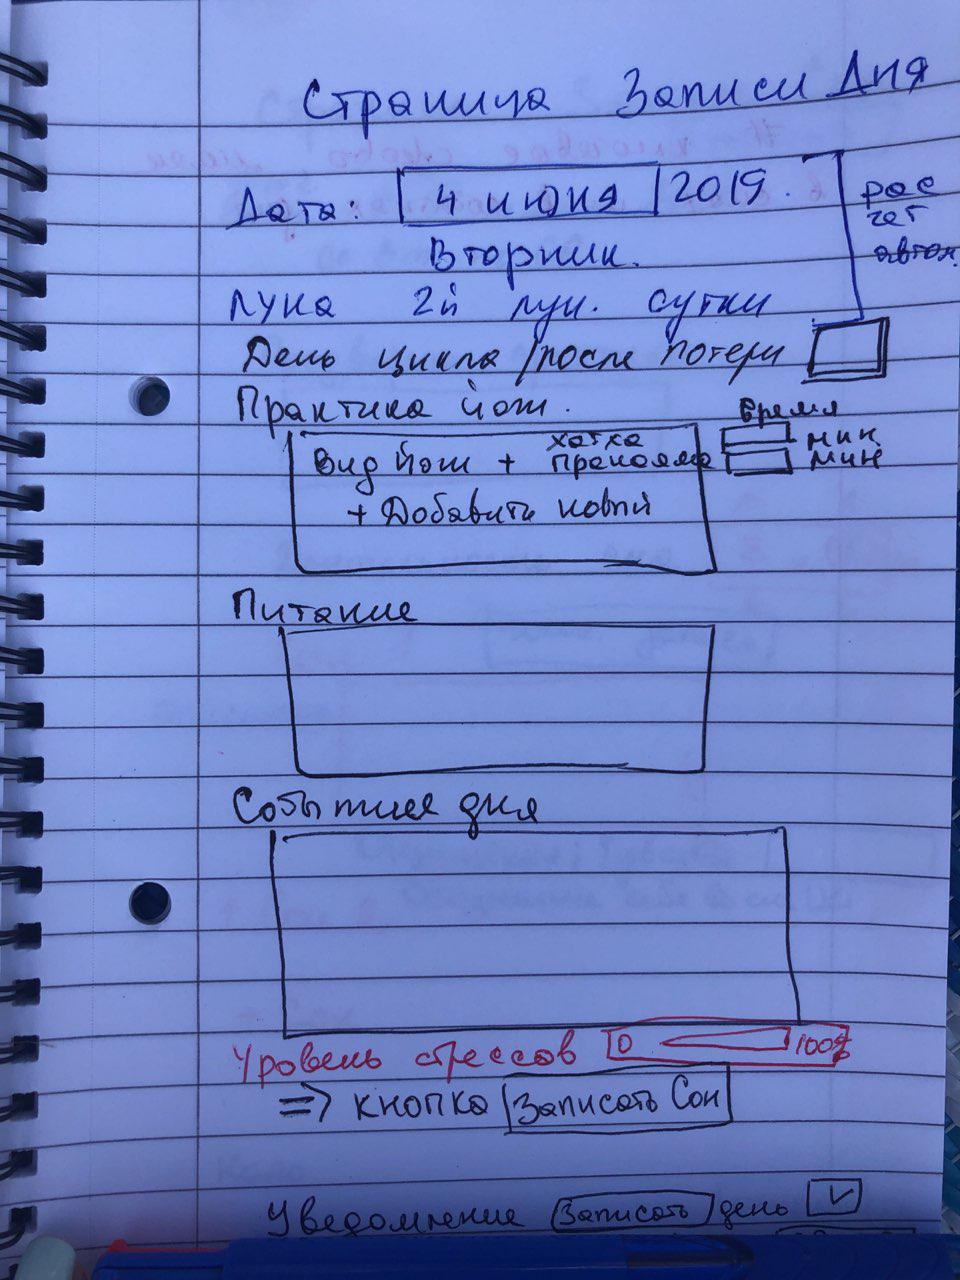 Страница Записи Дня
Дата: 4 июня 2019.
рас
чет
автом.
Вторник.
Луна 2й лун. сутки
День цикла /после потери
Практика йоги.
Время
Вид Йоги + хатха
пранояма
мин
мин
+ Добавить новый
Питание
События дня
Уровень стрессов 0 100%
=> кнопка Записать Сон
Уведомление Записать день